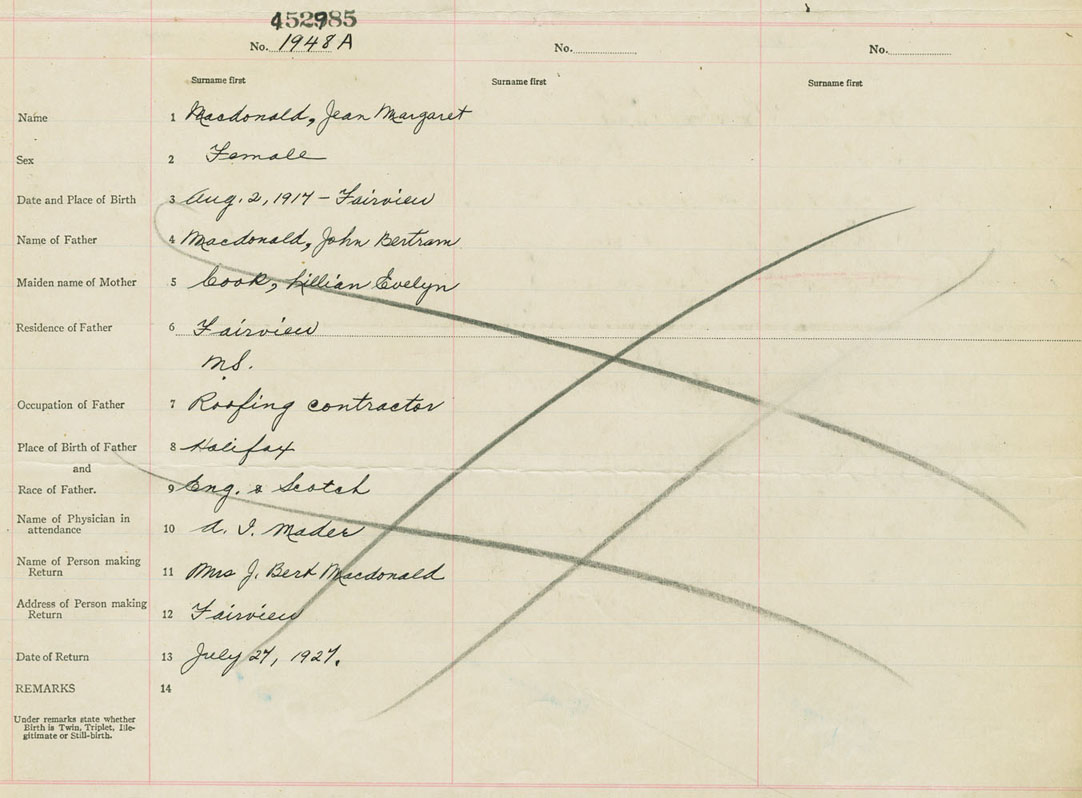 452985
No. 1948 A
No.
No.
Surname first
Surname first
Surname first
Name 1 Macdonald, Jean Margaret
Sex 2 Female
Date and Place of Birth 3 Aug. 2, 1917 - Fairview
Name of Father 4 Macdonald, John Bertram
Maiden name of Mother 5 Cook, Lillian Evelyn
Residence of Father 6 Fairview
N.S.
Occupation of Father 7 Roofing contractor
Place of Birth of Father 8 Halifax
and
Race of Father. 9 Eng. & Scotch
Name of Physician in
attendance 10 A. I. Mader
Name of Person making
Return 11 Mrs J. Bert Macdonald
Address of Person making
Return 12 Fairview
Date of Return 13 July 27, 1927.
REMARKS 14
Under remarks state whether
Birth is Twin, Triplet, Ille-
gitimate or Still-birth.